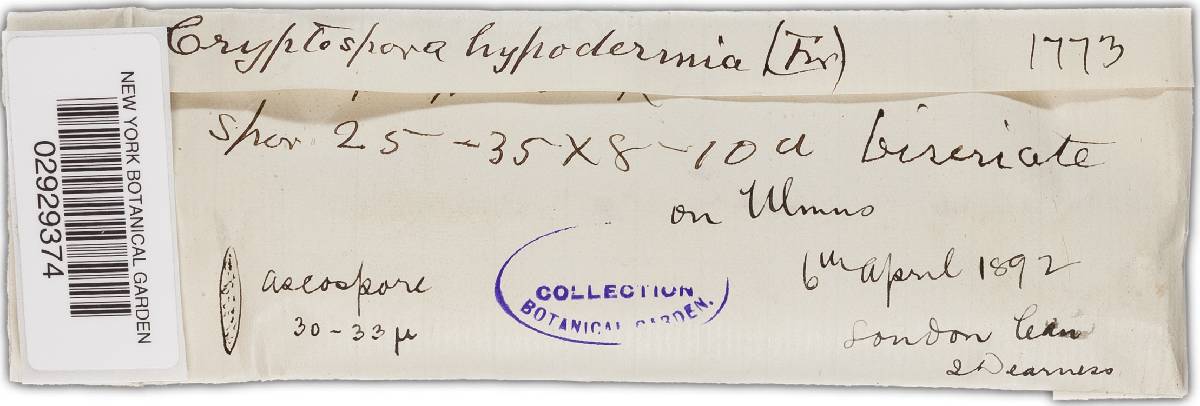 Cryptospora hypodermia (Fr) 1773
spor 25-35 X 8-10 biseriate
on Ulmus
6th april 1892
London Can
J Dearness
ascospore
30-33 µ
COLLECTION
BOTANICAL GARDEN.
NEW YORK BOTANICAL GARDEN
02929374